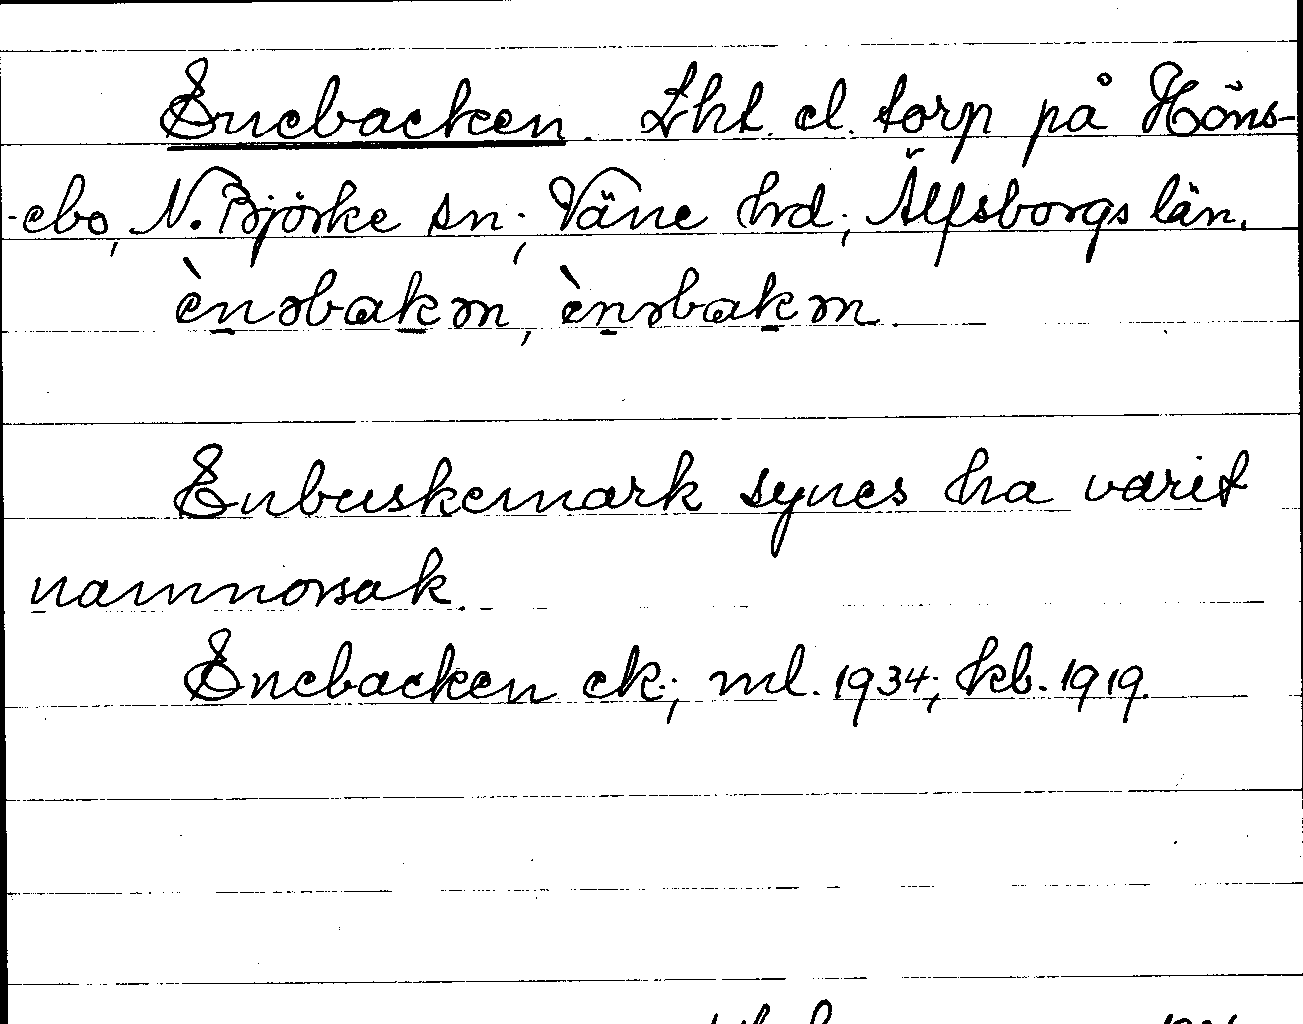 Enebacken. Lht. el. torp på Höns-
-ebo, N. Björke sn; Väne hrd; Älfsborgs län.
ènəbakən, ènəbakən.
Enbuskemark synes ha varit
namnorsak.
Enebacken ek; ml. 1934; kb. 1919.